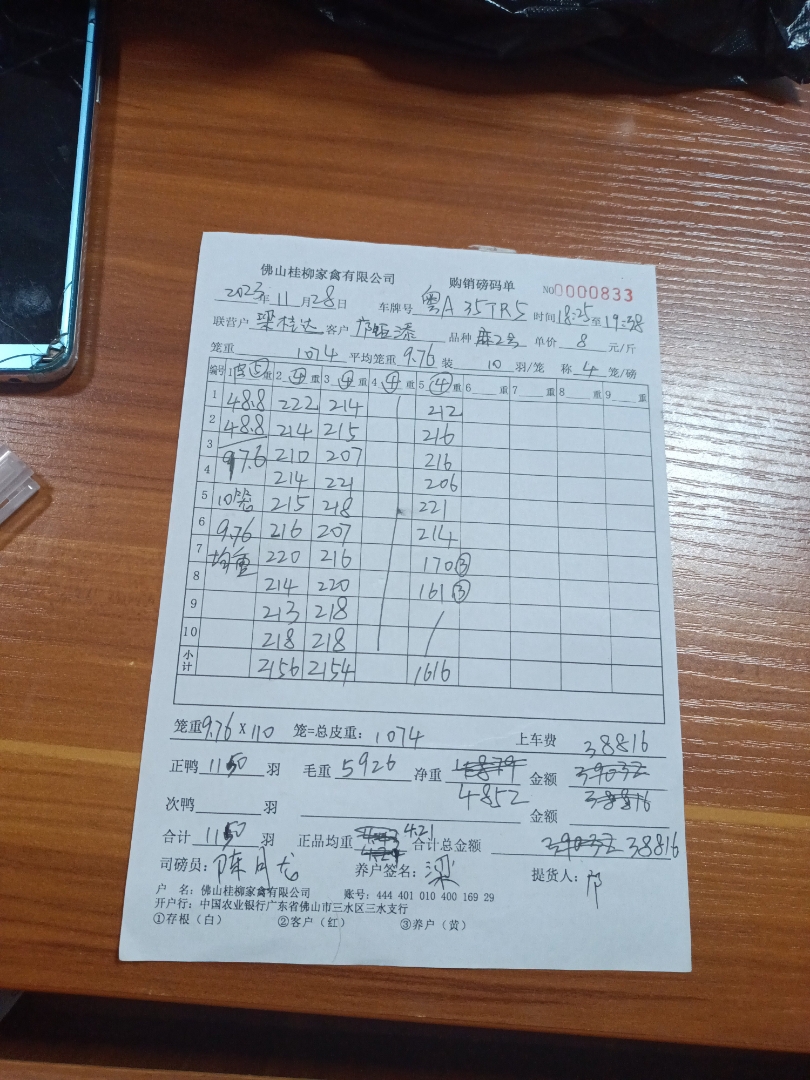 佛山桂柳家禽有限公司 购销磅码单 NO 0000833
2023年 11月28日 车牌号 粤A 35TR5 时间18:25至19:38
联营户 梁桂达 客户 品种 麻2号 单价 8 元/斤
笼重 1074 平均笼重 9.76 装 10 羽/笼 称 4 笼/磅
编号 1 ⑤ 重 2 ④ 重 3 ④ 重 4 ④ 重 5 ④ 重 6 重 7 重 8 重 9 重
1 48.8 222 214 212
2 48.8 214 215 216
3 97.6 210 207 216
4 214 221 206
5 10笼 215 218 221
6 9.76 216 207 214
7 均重 220 216 170③
8 214 220 161③
9 213 218
10 218 218
小计 2156 2154 1616
笼重9.76 X 110 笼=总皮重: 1074 上车费 38816
正鸭 1150 羽 毛重 5926 净重 4879 金额 39032
次鸭 羽 4852 金额 38816
合计 1150 羽 正品均重 4.21 合计总金额 39032 38816
司磅员: 陈月龙 养户签名: 梁 提货人:
户 名: 佛山桂柳家禽有限公司 账号: 444 401 010 400 169 29
开户行: 中国农业银行广东省佛山市三水区三水支行
①存根（白） ②客户（红） ③养户（黄）